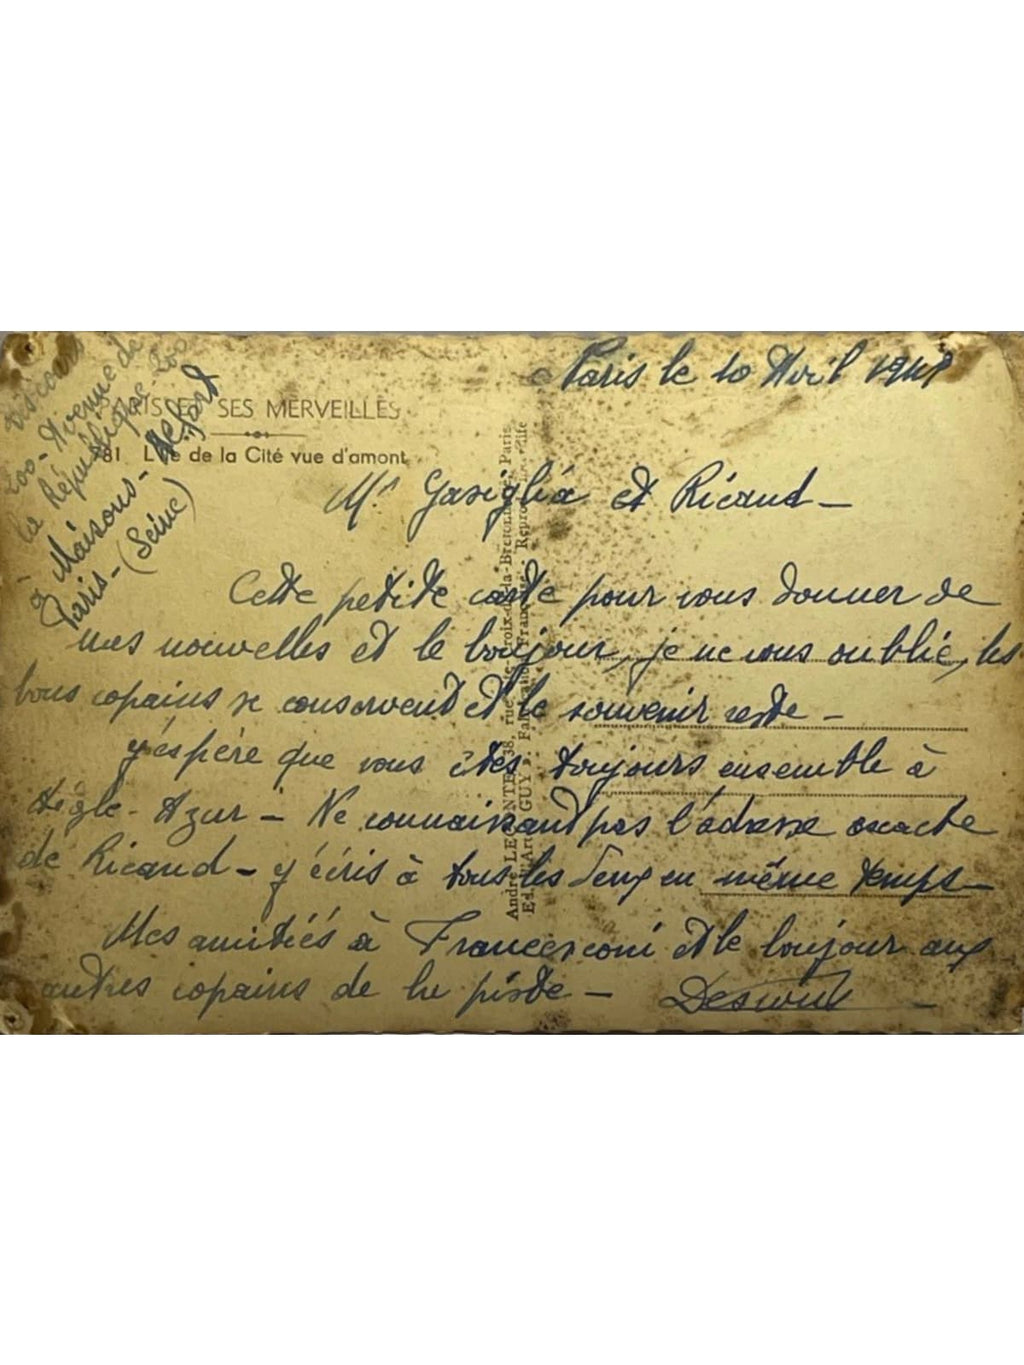 Paris le 10 Avril 1948
200 - Avenue de
la République 200
à Maisons-Alfort
Paris - (Seine)
PARIS ET SES MERVEILLES
781 L'Ile de la Cité vue d'amont
Mrs Gasiglia et Ricaud -
Cette petite carte pour vous donner de
mes nouvelles et le boujour, je ne vous oublie, les
bons copains se conservent et le souvenir reste -
y'éspère que vous êtes toujours ensemble à
Aigle-Azur - Ne connaissant pas l'adresse exacte
de Ricaud - y'écris à tous les deux en même temps -
Mes amitiés à Francesconi et le boujour aux
autres copains de la piste -
André LECONTE, 38, rue Ste-Croix-de-la-Bretonnerie, Paris
GUY Fabrication Française